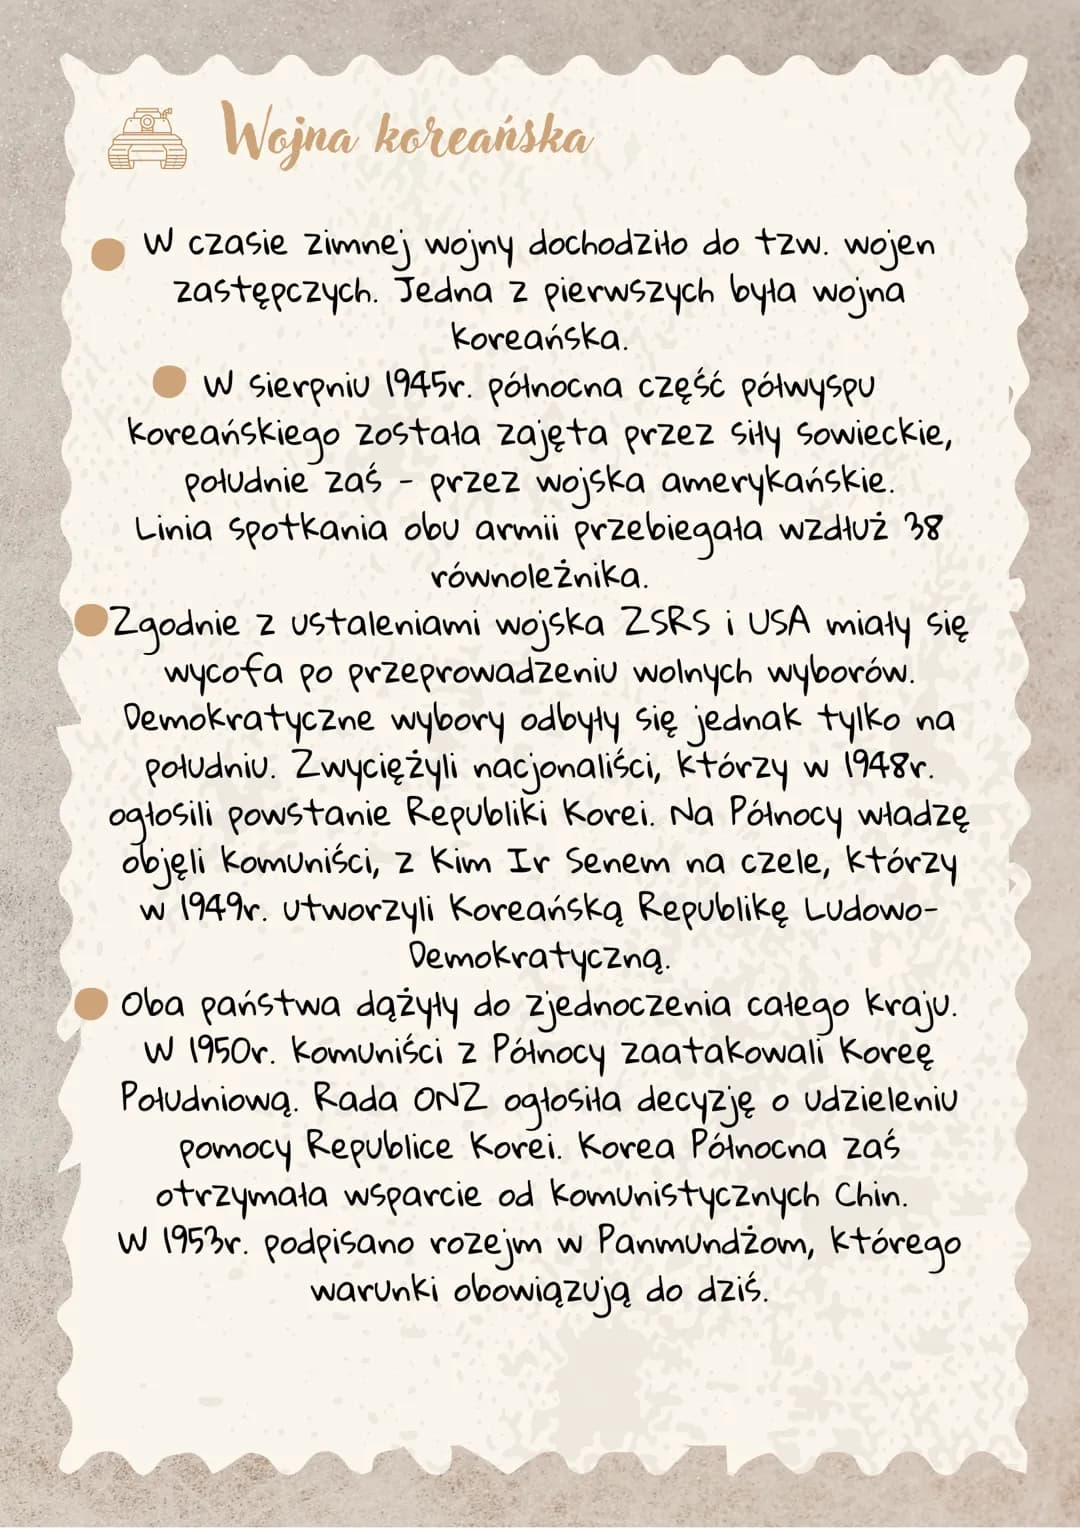 Wojna koreańska
W czasie zimnej wojny dochodziło do tzw. wojen
zastępczych. Jedna z pierwszych była wojna
koreańska.
W sierpniu 1945r. północna część półwyspu
koreańskiego została zajęta przez siły sowieckie,
południe zaś - przez wojska amerykańskie.
Linia spotkania obu armii przebiegała wzdłuż 38
równoleżnika.
Zgodnie z ustaleniami wojska ZSRS i USA miały się
wycofa po przeprowadzeniu wolnych wyborów.
Demokratyczne wybory odbyły się jednak tylko na
południu. Zwyciężyli nacjonaliści, którzy w 1948r.
ogłosili powstanie Republiki Korei. Na Północy władzę
objęli komuniści, z Kim Ir Senem na czele, którzy
w 1949r. utworzyli Koreańską Republikę Ludowo-
Demokratyczną.
Oba państwa dążyły do zjednoczenia całego kraju.
W 1950r. komuniści z Północy zaatakowali Koreę
Południową. Rada ONZ ogłosiła decyzję o udzieleniu
pomocy Republice Korei. Korea Północna zaś
otrzymała wsparcie od komunistycznych Chin.
W 1953r. podpisano rozejm w Panmundżom, którego
warunki obowiązują do dziś.